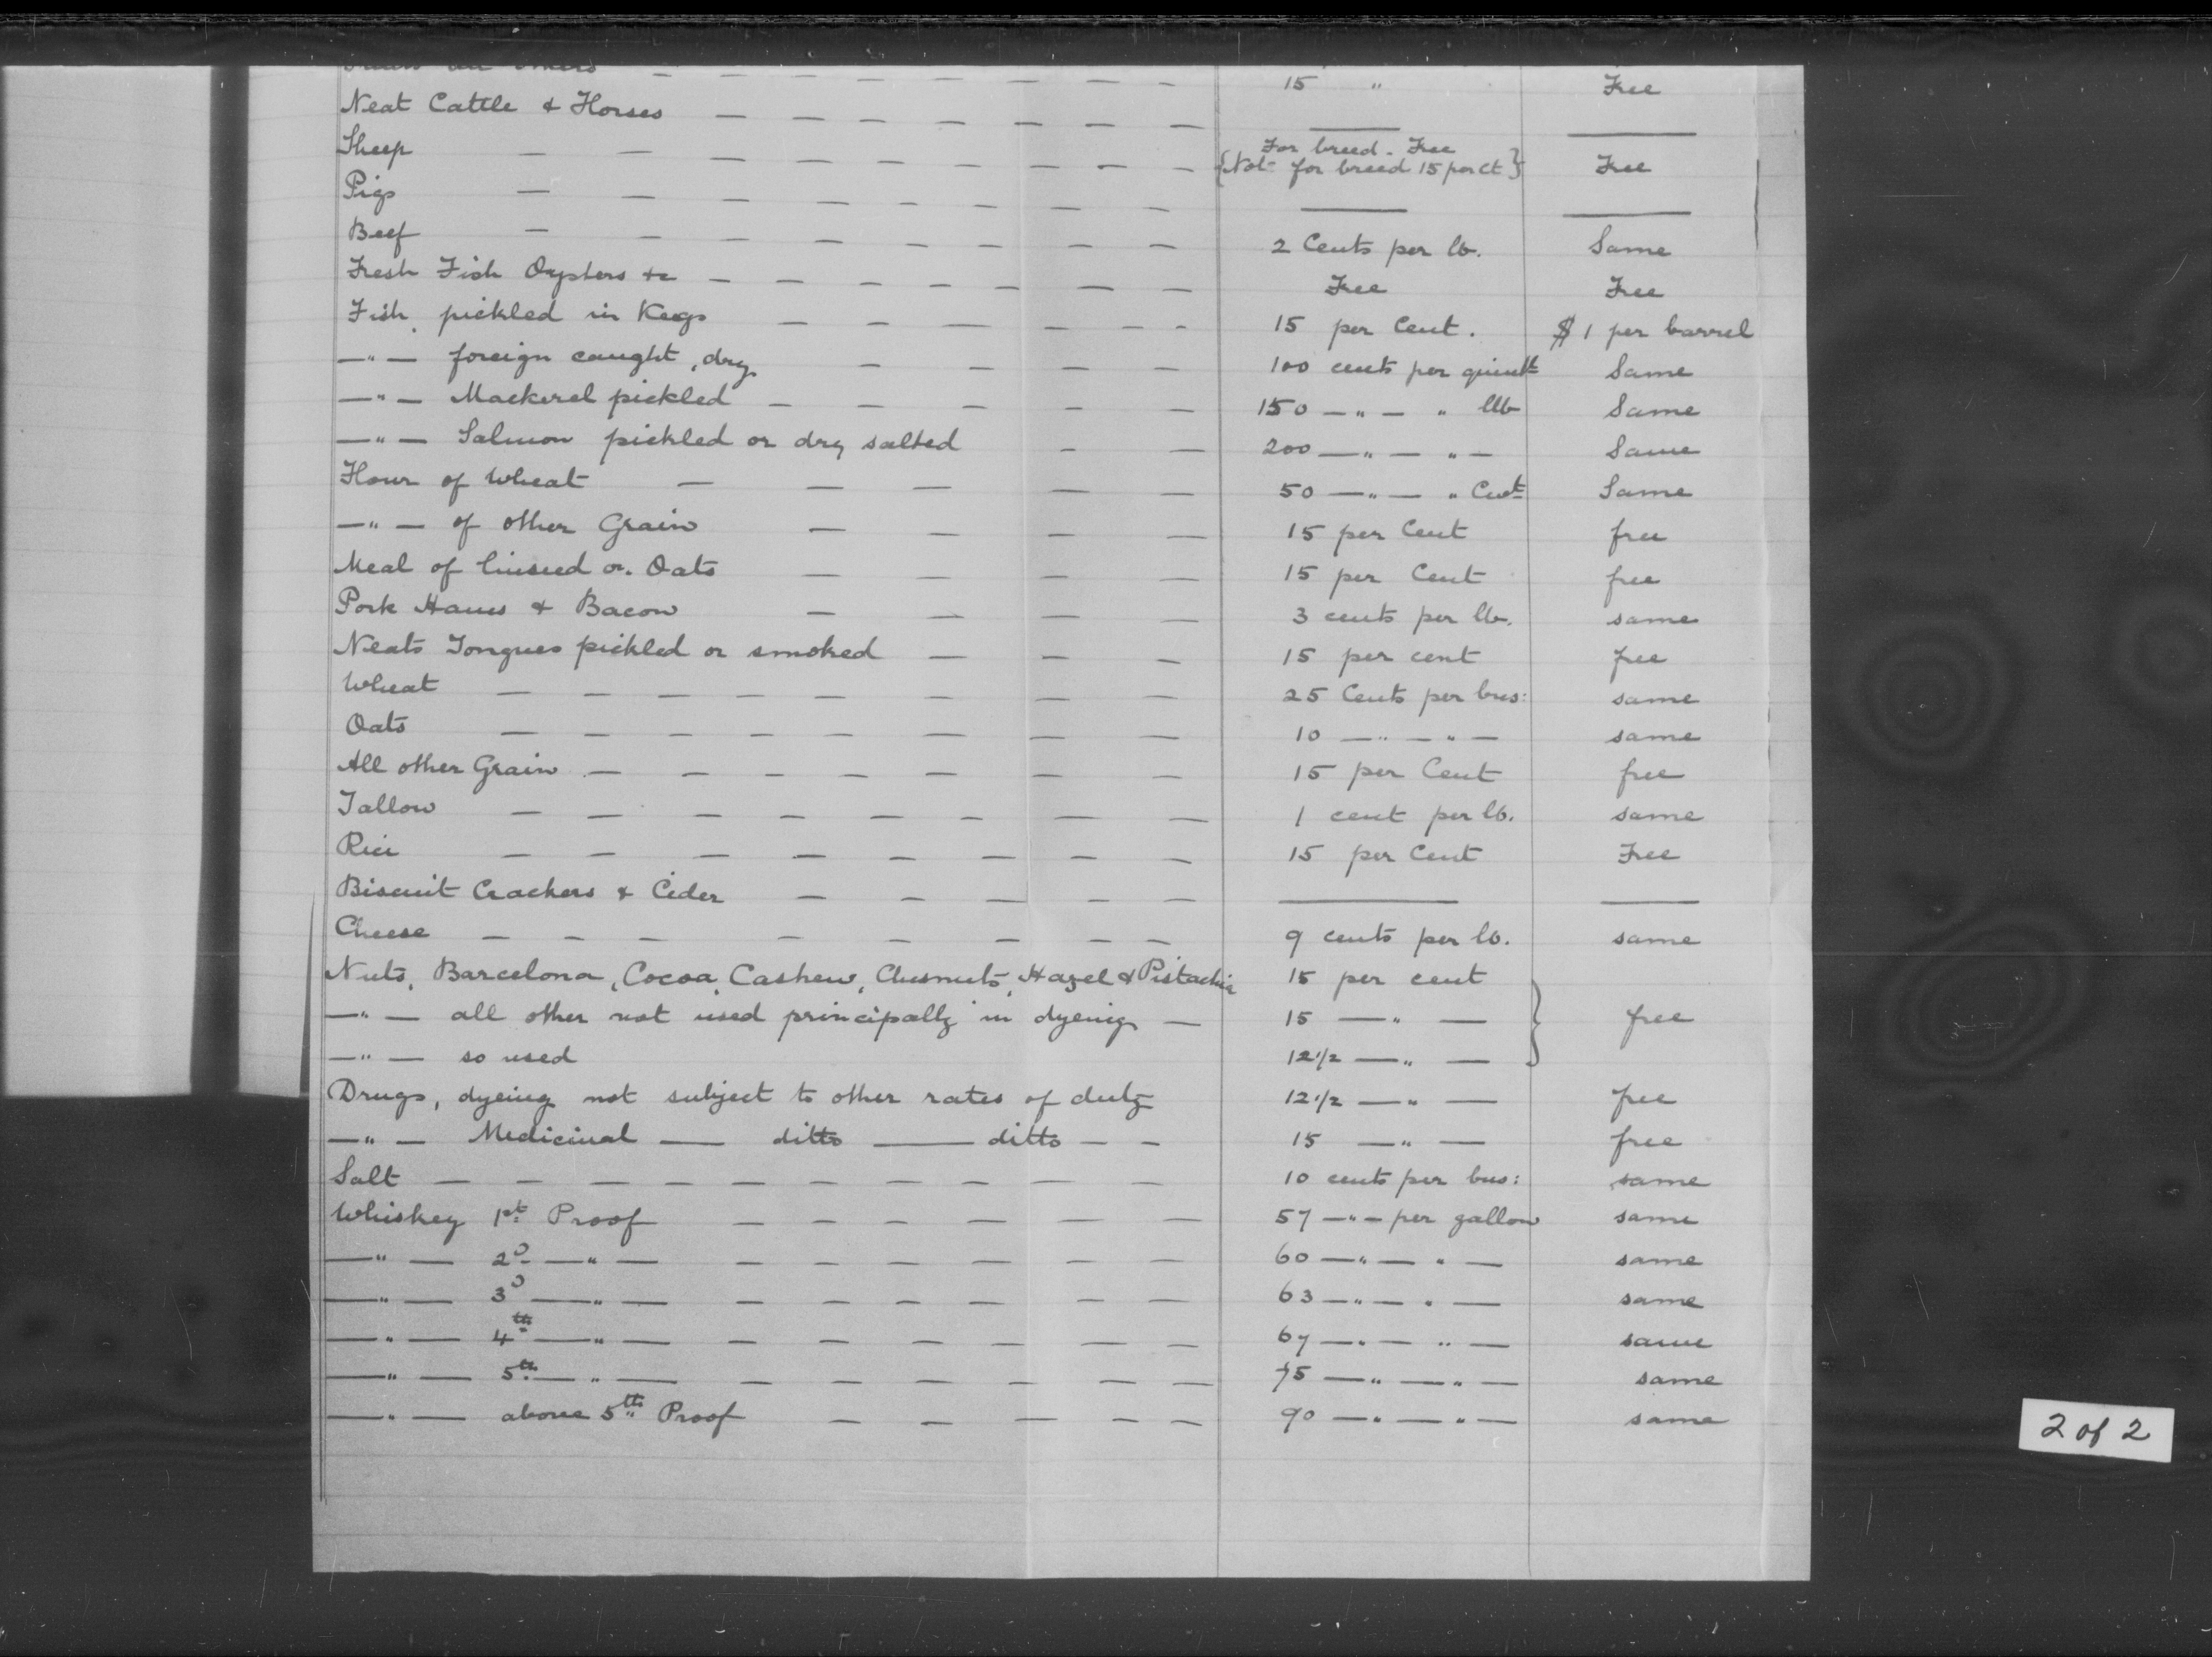 all others — — — — — — — — 15 " Free
Neat Cattle & Horses — — — — — — — ——— ———
Sheep — — — — — — — — — For breed - Free
{Not for breed 15 per ct} Free
Pigs — — — — — — — — ——— ———
Beef — — — — — — — — 2 Cents per lb. Same
Fresh Fish Oysters &c — — — — — — — Free Free
Fish, pickled in Kegs — — — — — — - 15 per Cent. $1 per barrel
—"— foreign caught, dry — — — — 100 cents per quintl Same
—"— Mackerel pickled — — — — — 150 —"— " bbl Same
—"— Salmon pickled or dry salted - — 200 —"— "— Same
Flour of Wheat — — — — — 50 —"— " Cwt Same
—"— of other Grain — — — — 15 per Cent free
Meal of linseed or Oats — — — — 15 per Cent free
Pork Hams & Bacon — — — — 3 cents per lb. same
Neats Tongues pickled or smoked — — — 15 per cent free
Wheat — — — — — — — — 25 Cents per bus: same
Oats — — — — — — — — 10 —"— "— same
All other Grain — — — — — — — 15 per Cent free
Tallow — — — — — — — — 1 cent per lb. same
Rice — — — — — — — — 15 per Cent Free
Biscuit Crackers & Cider — — — — — ——— ———
Cheese — — — — — — — — 9 cents per lb. same
Nuts, Barcelona, Cocoa, Cashew, Chesnuts, Hazel & Pistachia 15 per cent
—"— all other not used principally in dyeing — 15 —"— } free
—"— so used 12 1/2 —"—
Drugs, dyeing not subject to other rates of duty 12 1/2 —"— free
—"— Medicinal — ditto — ditto — — 15 —"— free
Salt — — — — — — — — — 10 cents per bus: same
Whiskey 1st Proof — — — — — — 57 —"— per gallon same
—"— 2d —"— — — — — — — 60 —"— " — same
—"— 3d —"— — — — — — — 63 —"— " — same
—"— 4th —"— — — — — — — 67 —"— " — same
—"— 5th —"— — — — — — — 75 —"— " — same
—"— above 5th Proof — — — — — 90 —"— " — same
2 of 2